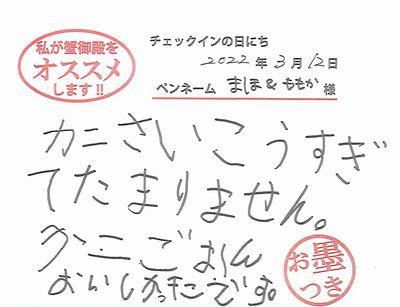 私が蟹御殿を
オススメ
します!!
チェックインの日にち
2022年 3月12日
ペンネーム ましほ&ももか 様
カニさいこうすぎ
てたまりません。
カニごはん
おいしかったです。
お墨
つき